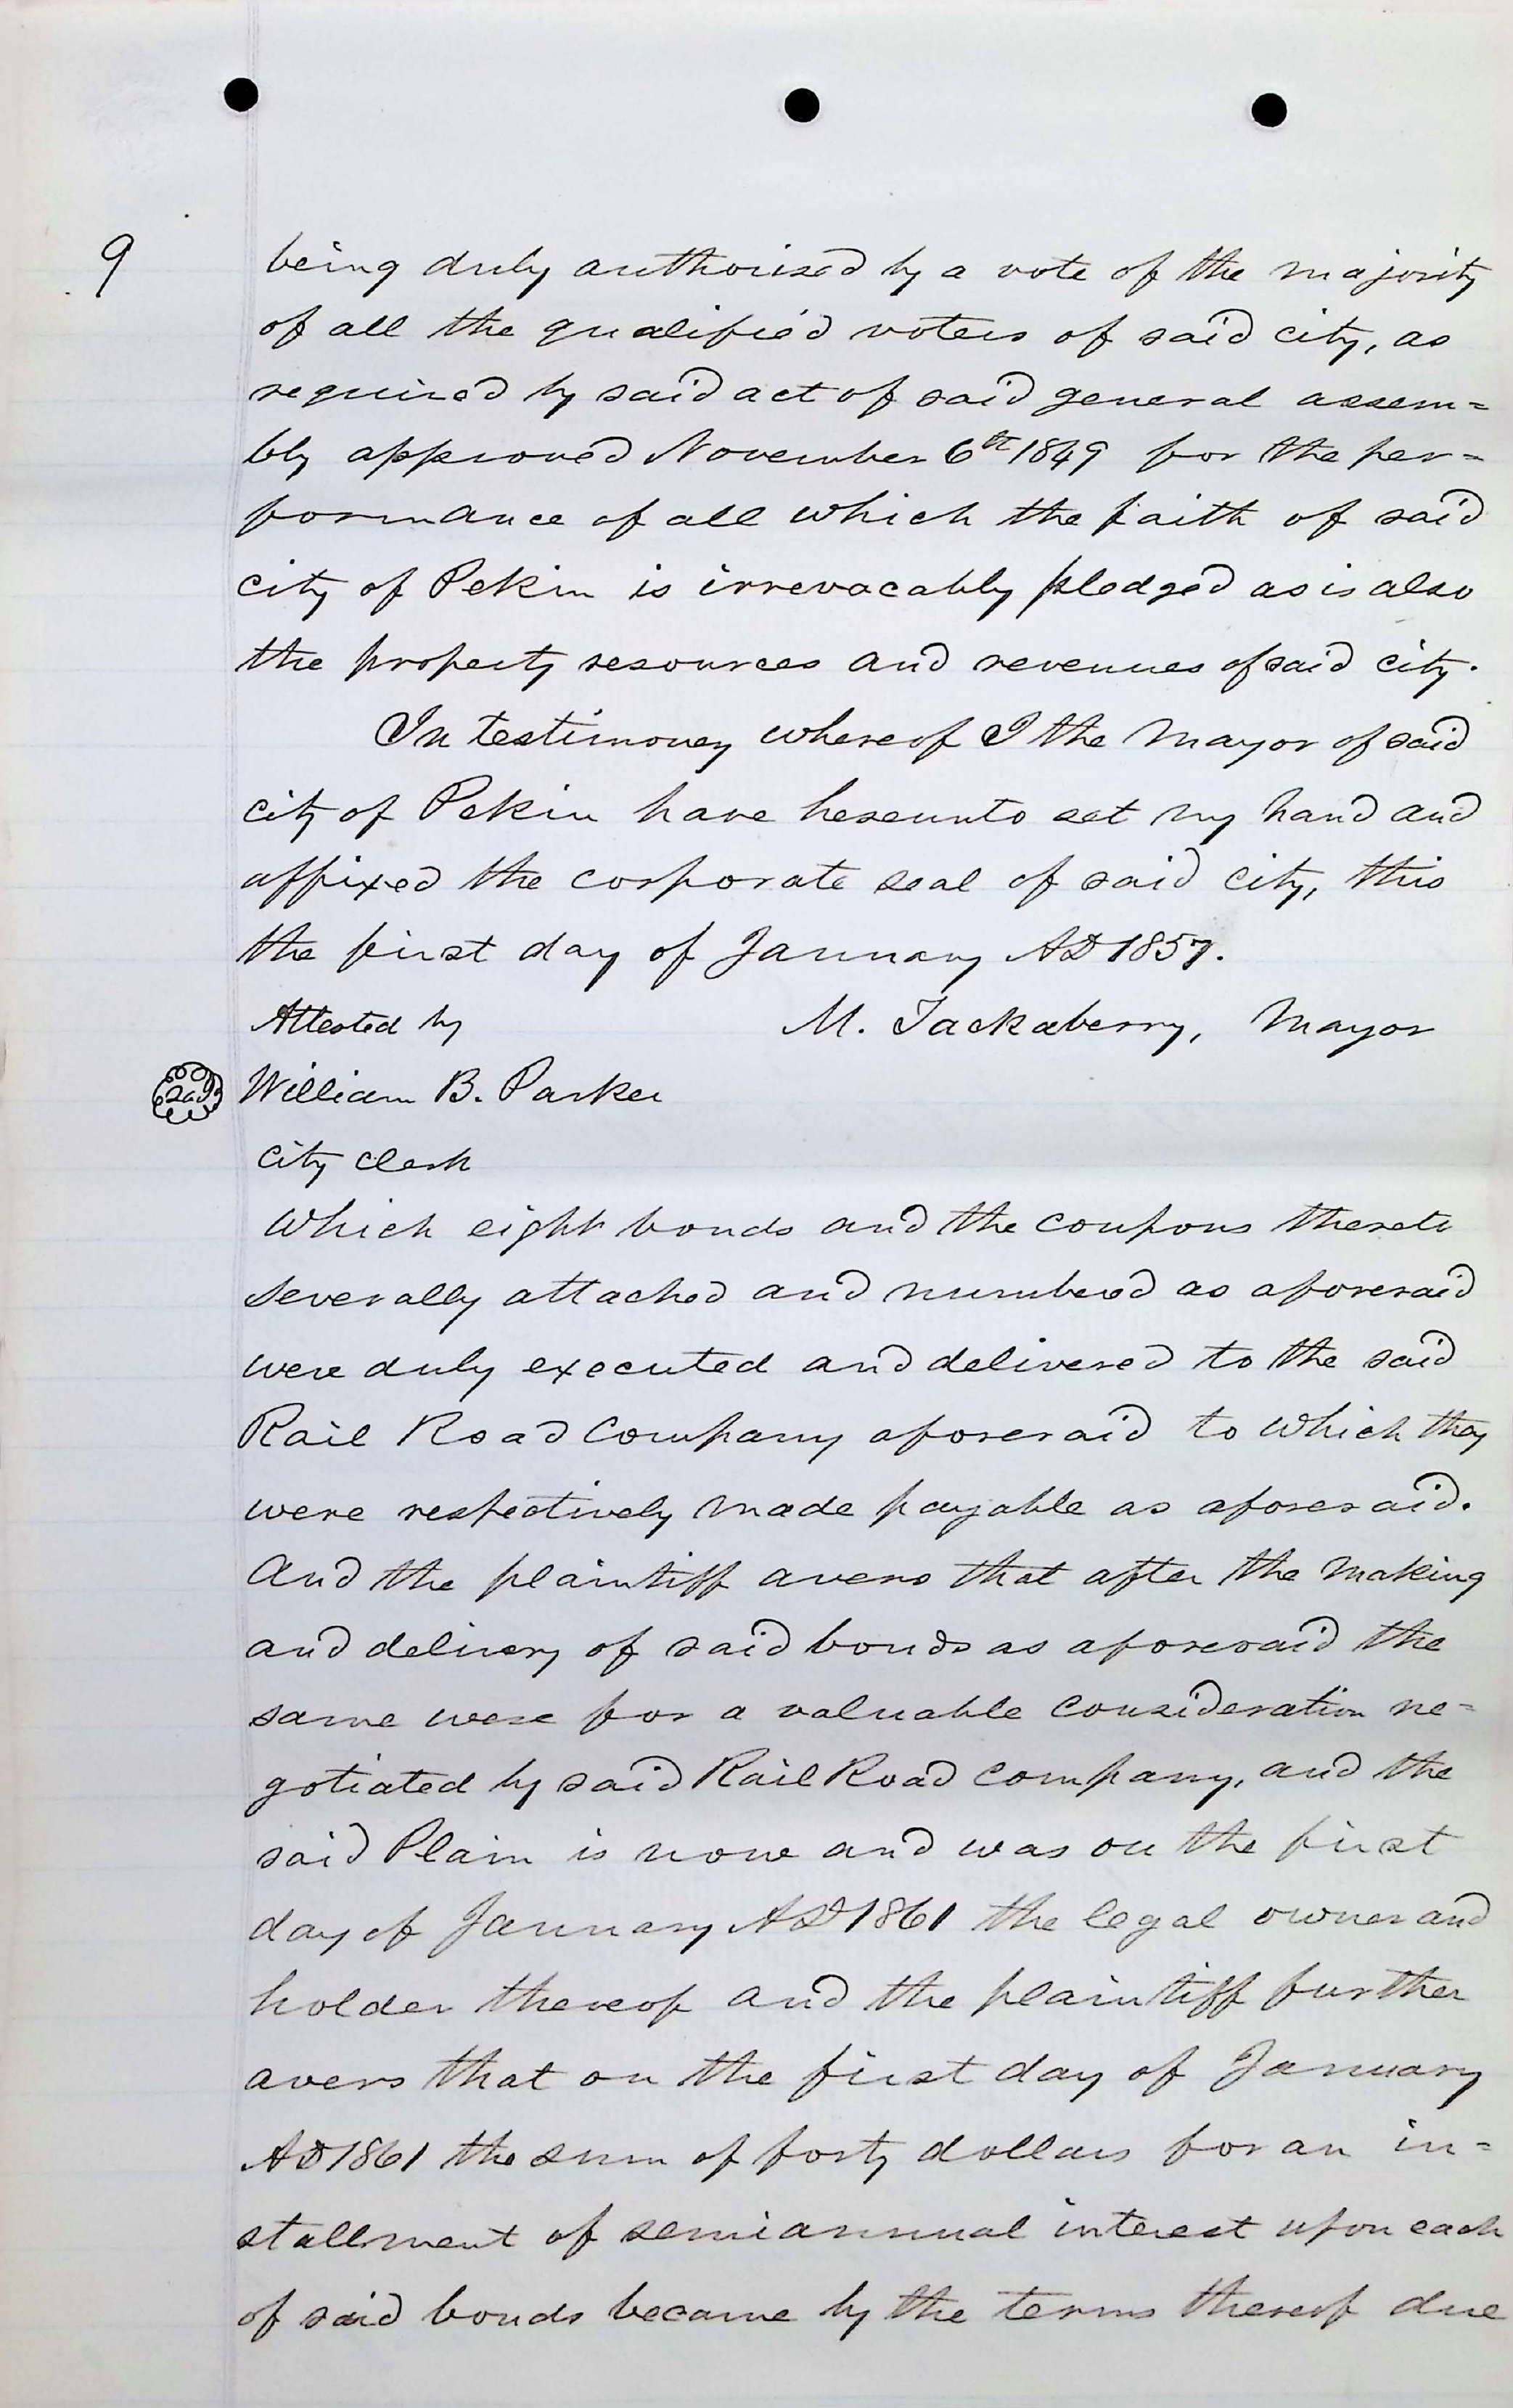 9
being duly authorised by a vote of the majority
of all the qualified voters of said city, as
required by said act of said general assem=
bly approved November 6th 1849 for the per=
formance of all which the faith of said
city of Pekin is irrevacably pledged as is also
the property resources and revenues of said city.
In testimoney whereof I the Mayor of said
city of Pekin have hereunto set my hand and
affixed the corporate seal of said city, this
the first day of January AD 1857.
Attested by M. Tackaberry, Mayor
William B. Parker
City Clerk
Which eight bonds and the coupons thereto
severally attached and numbered as aforesaid
were duly executed and delivered to the said
Rail Road Company aforesaid to which they
were respectively made payable as aforesaid.
And the plaintiff avers that after the making
and delivery of said bonds as aforesaid the
same were for a valuable consideration ne=
gotiated by said Rail Road Company, and the
said Plain is now and was on the first
day of January AD 1861 the legal owner and
holder thereof and the plaintiff further
avers that on the first day of January
AD 1861 the sum of forty dollars for an in=
stallment of semiannual interest upon each
of said bonds became by the terms thereof due